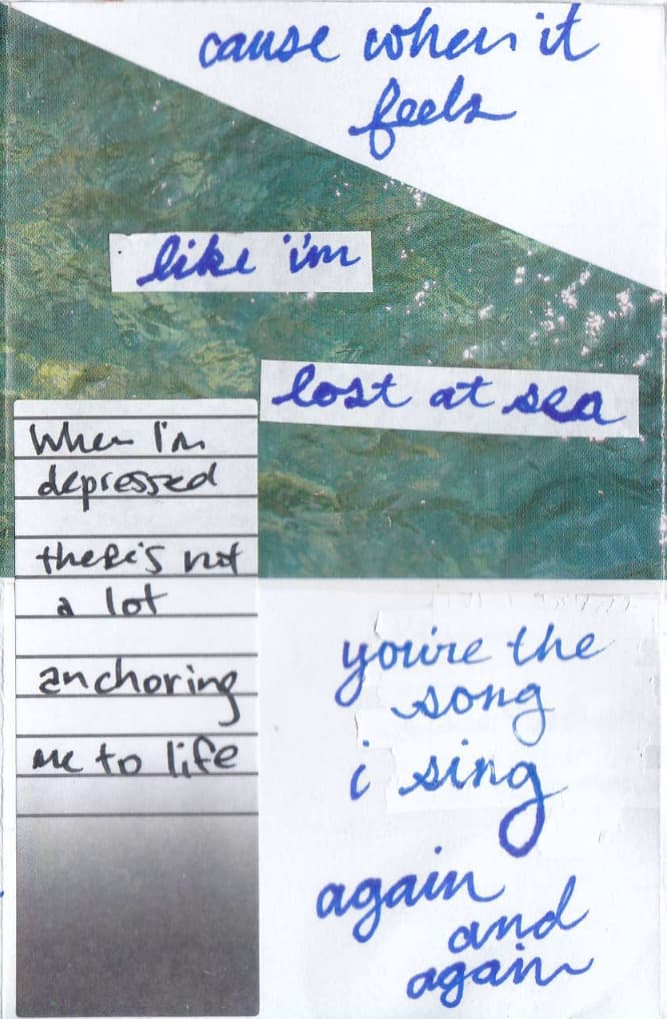 cause when it
feels
like i'm
lost at sea
When I'm
depressed
there's not
a lot
anchoring
me to life
you're the
song
i sing
again
and
again